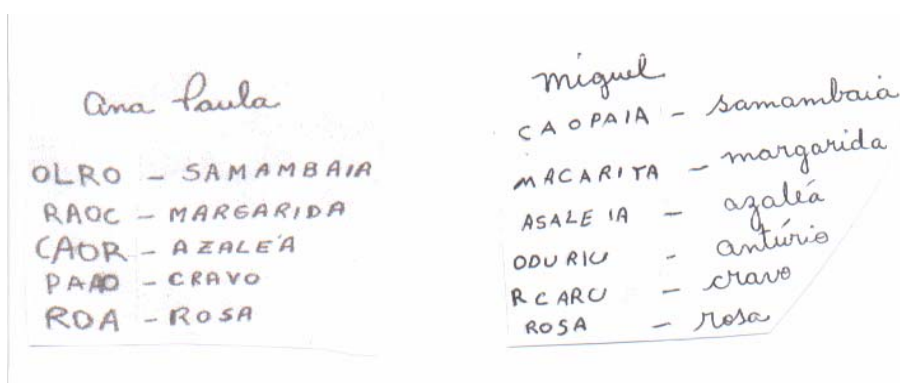 Ana Paula
OLRO - SAMAMBAIA
RAOC - MARGARIDA
CAOR - AZALEÁ
PAAO - CRAVO
ROA - ROSA
Miguel
CAOPAIA - samambaia
MACARITA - margarida
ASALEIA - azaleá
ODURIU - antúrio
RCARU - cravo
ROSA - rosa